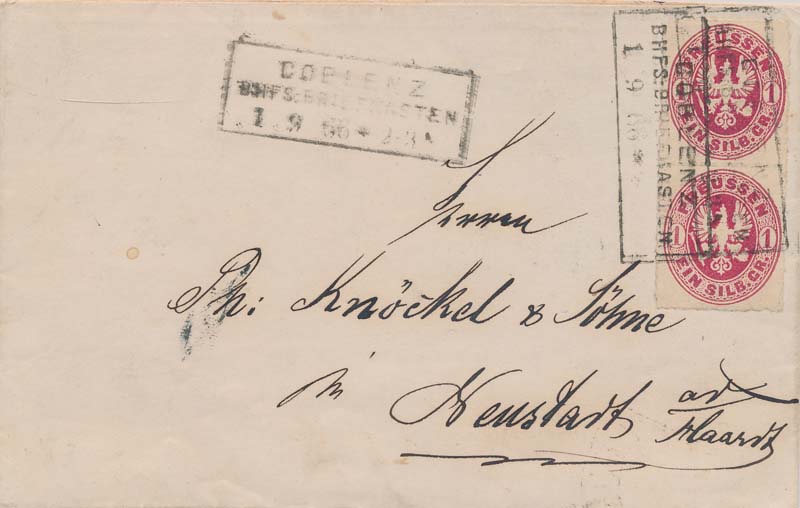 COBLENZ
BHFS:BRIEFKASTEN
1 9 66 * 2-3
COBLENZ
BHFS:BRIEFKASTEN
1 9 66 *
PREUSSEN
1
EIN SILB.GR.
PREUSSEN
1 1
EIN SILB.GR.
Herren
Ph: Knöckel & Söhne
in Neustadt a/d Haardt